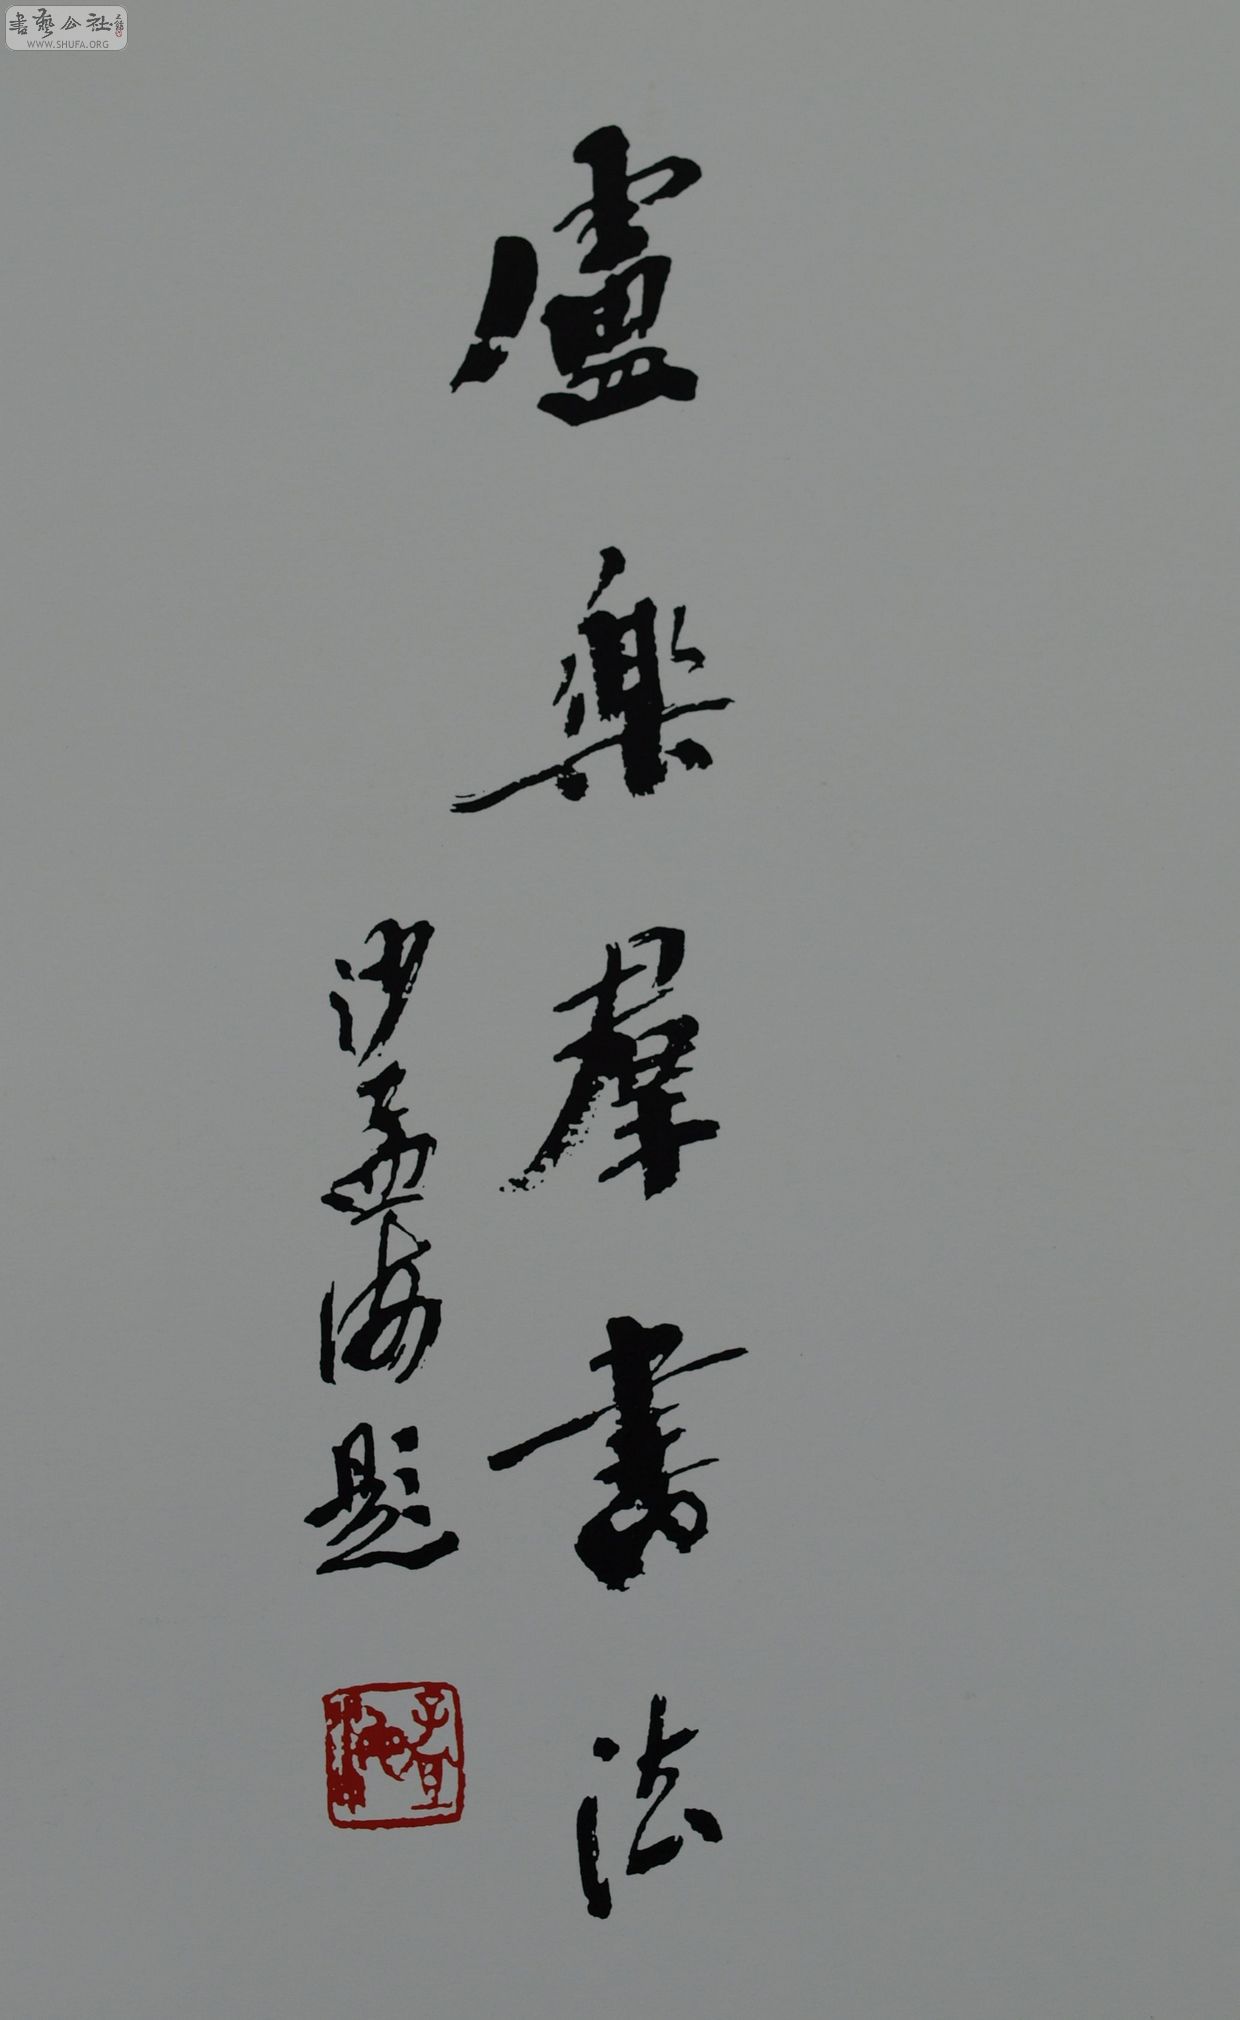 書藝公社
WWW.SHUFA.ORG
盧樂群書法
沙孟海題
孟海